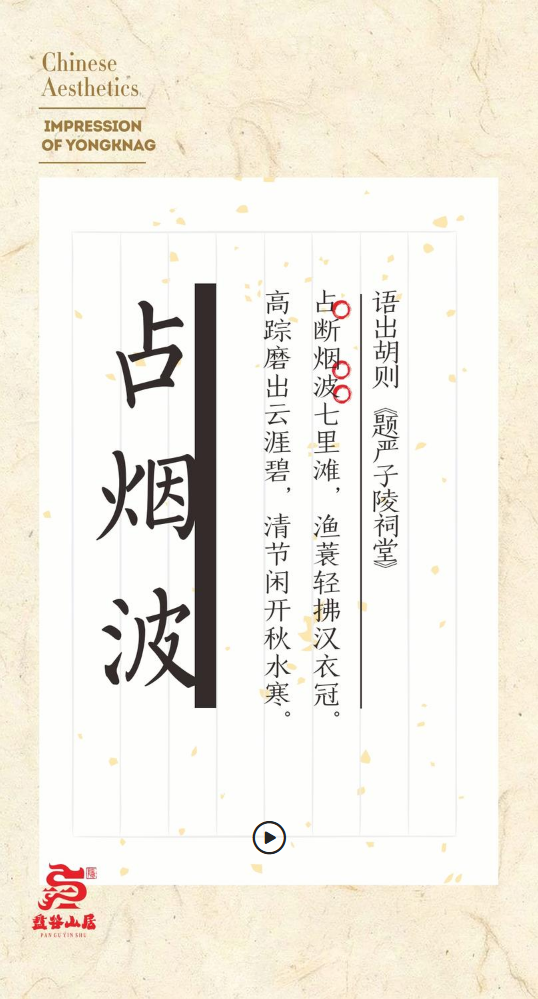 Chinese
Aesthetics
IMPRESSION
OF YONGKNAG
语出胡则《题严子陵祠堂》
占断烟波七里滩，渔蓑轻拂汉衣冠。
高踪磨出云涯碧，清节闲开秋水寒。
占烟波
盘谷山居
PAN GU YIN SHU